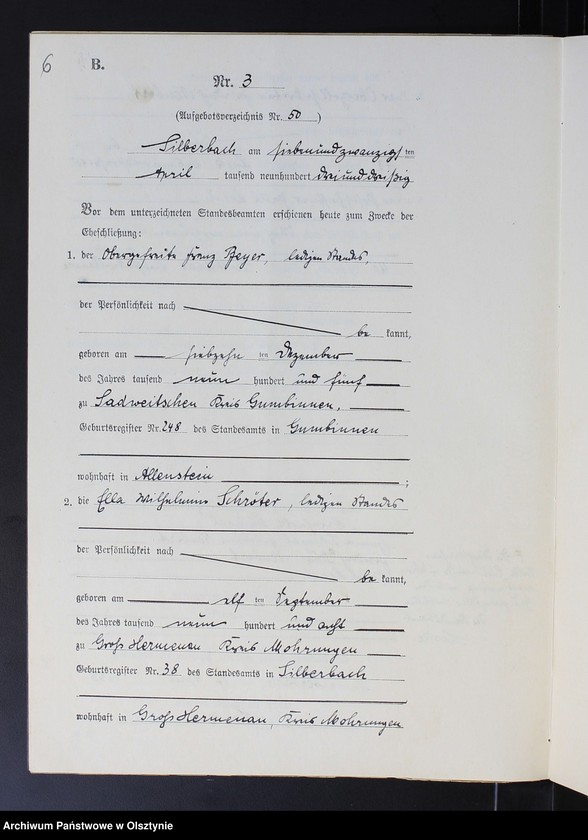 6
B.
Nr. 3
(Aufgebotsverzeichnis Nr. 50)
Silberbach am siebenundzwanzigsten
April tausend neunhundert dreiunddreißig
Vor dem unterzeichneten Standesbeamten erschienen heute zum Zwecke der
Eheschließung:
1. der Obergefreite Franz Beyer, ledigen Standes,
der Persönlichkeit nach
be kannt,
geboren am siebzehn ten Dezember
des Jahres tausend neun hundert und fünf
zu Sadweitschen Kreis Gumbinnen,
Geburtsregister Nr. 248 des Standesamts in Gumbinnen
wohnhaft in Allenstein ;
2. die Ella Wilhelmine Schröter, ledigen Standes
der Persönlichkeit nach
be kannt,
geboren am elf ten September
des Jahres tausend neun hundert und acht
zu Groß Hermenau Kreis Mohrungen
Geburtsregister Nr. 38 des Standesamts in Silberbach
wohnhaft in Groß Hermenau, Kreis Mohrungen
Archiwum Państwowe w Olsztynie